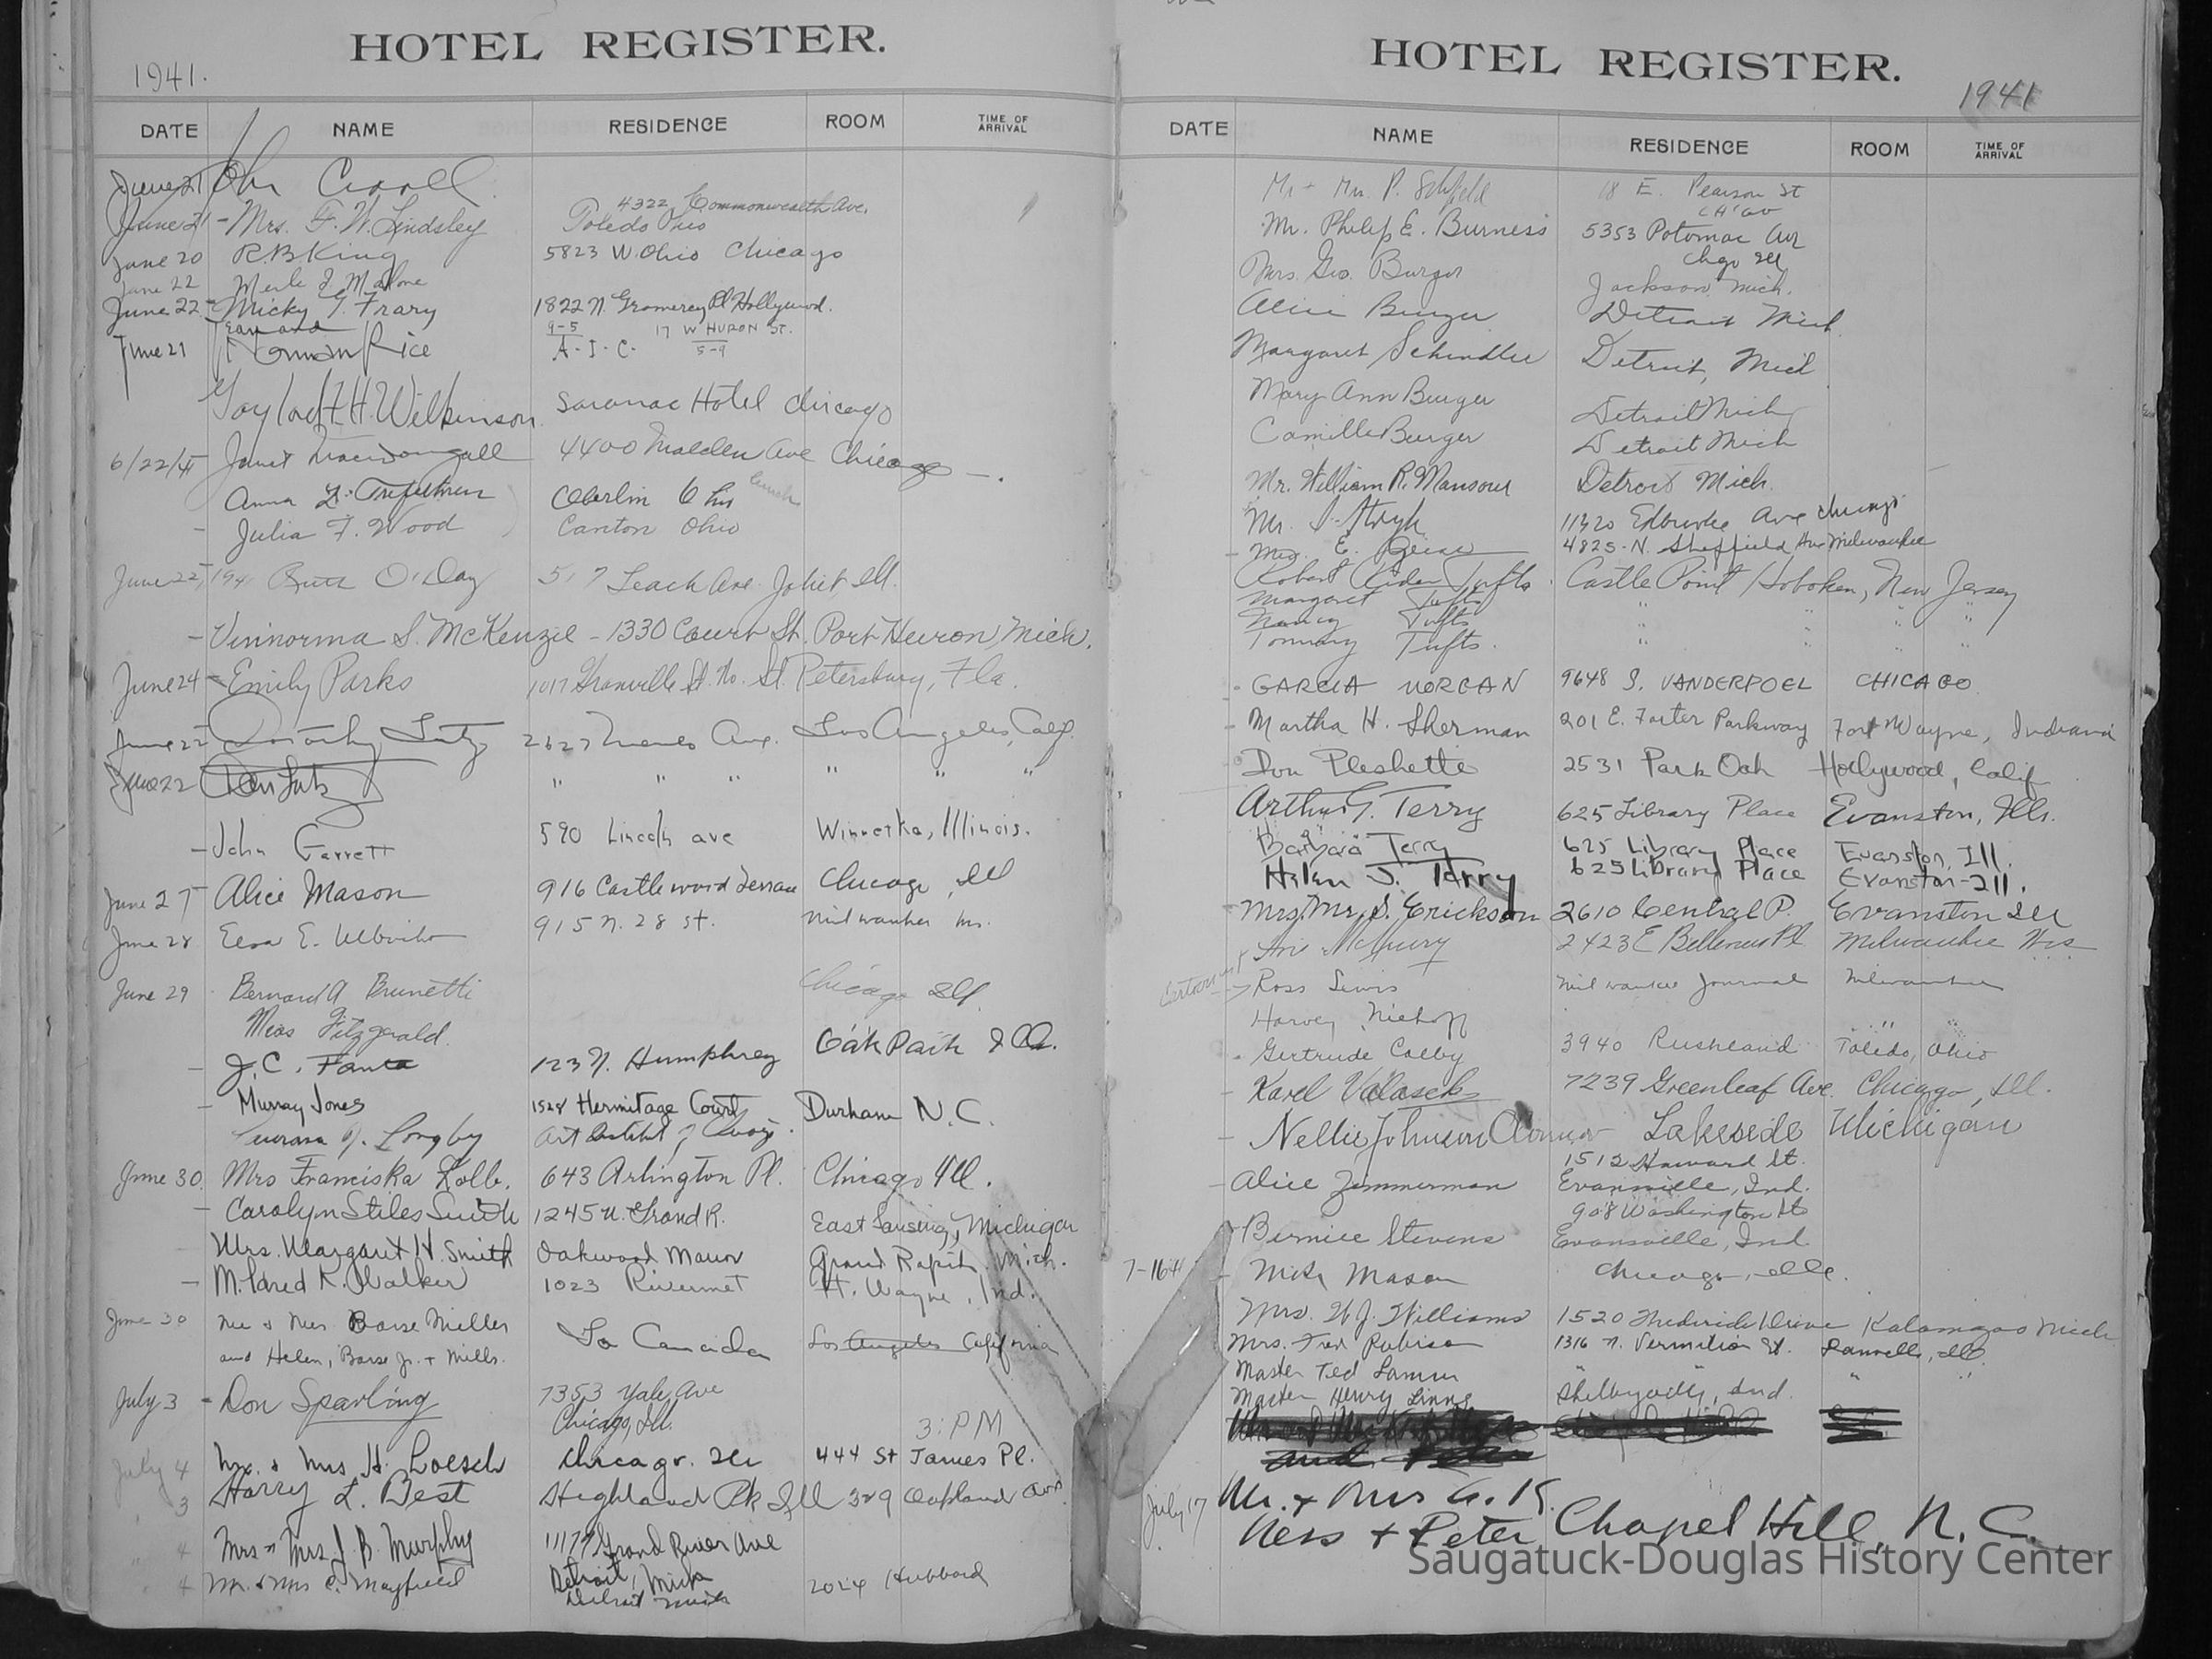 HOTEL REGISTER.
1941.
DATE NAME RESIDENCE ROOM TIME OF ARRIVAL
June 21 John Carroll
June 21 - Mrs. F. W. Lindsley 4322 Commonwealth Ave. Toledo Ohio
June 20 R.B King 5823 W. Ohio Chicago
June 22 Merle J Malone
June 22 - Micky G. Frary 1822 N. Gramercy Pl Hollywood.
June 21 Jean and Norman Rice 9-5 A.I.C. 17 W HURON ST. 5-9
H. Wilkinson Saranac Hotel Chicago
6/22/41 Janet MacDougall 4400 Malden Ave Chicago
Anna L. Oberlin Ohio lunch
- Julia F. Wood Canton Ohio
June 22, 1941 Ruth O'Day 517 Leach Ave. Joliet Ill.
- Vinnorma S. McKenzie - 1330 Court St. Port Huron, Mich.
June 24 - Emily Parks 1017 Granville St. No. St. Petersburg, Fla.
June 22 Dorothy Lutz 2627 Ave. Los Angeles, Calif.
June 22 Dan Lutz " " " " " "
- John Garrett 590 Lincoln ave Winnetka, Illinois.
June 27 Alice Mason 916 Castlewood Terrace Chicago, Ill
June 28 E. 915 N. 28 St. Milwaukee
June 29 Bernard A Brunetti Chicago Ill.
Miss Fitzgerald
- J. C. Fanta 123 N. Humphrey Oak Park Ill.
- Murray Jones 1528 Hermitage Court Durham N.C.
Longby Art Institut of Chicago.
June 30 Mrs Franciska Kolb. 643 Arlington Pl. Chicago Ill.
- Carolyn Stiles Smith 1245 N. Grand R. East Lansing, Michigan
Mrs. Margaret H. Smith Oakwood Manor Grand Rapids. Mich.
- Mildred K. Walker 1023 Rivermet Ft. Wayne, Ind.
June 30 Mr & Mrs Barse Miller La Canada Los Angeles California
and Helen, Barse Jr. + Mills.
July 3 - Don Sparling 7353 Yale Ave Chicago, Ill. 3: PM
July 4 Mr. & Mrs H. Loesch Chicago. Ill 444 St James Pl.
3 Harry L. Best Highland Pk Ill 329 Ave
4 J. B. Murphy 11179 Grand River Ave Detroit, Mich
4 Mr. & Mrs C. Mayfield Detroit Mich 2024 Hubbard
HOTEL REGISTER.
1941
DATE NAME RESIDENCE ROOM TIME OF ARRIVAL
Mr + Mrs. P. 18 E. Pearson St
Mr. Philip E. Burness 5353 Potomac Ave Chgo Ill
Mrs. Geo. Burger Jackson, Mich.
Alice Burger Detroit Mich
Margaret Schindler Detroit, Mich
Mary Ann Burger Detroit Mich
Camille Burger Detroit Mich
Mr. William R. Mansour Detroit Mich.
Mr. 11320 Edbrooke Ave Chicago
- E. 4825 - N. Sheffield Ave Milwaukee
Robert Tufts Castle Point Hoboken, New Jersey
Margaret Tufts " " " "
Nancy Tufts
Tommy Tufts. " " " "
- GARCIA MORGAN 9648 S. VANDERPOEL CHICAGO
- Martha H. Sherman 201 E. Foster Parkway Fort Wayne, Indiana
Don Pleshette 2531 Park Oak Hollywood, Calif
Arthur G. Terry 625 Library Place Evanston, Ills.
Barbara Terry 625 Library Place Evanston, Ill.
Helen J. Terry 625 Library Place Evanston - Ill.
- Mrs, Mr, S. Erickson 2610 Central P. Evanston Ill
2423 E Bellevue Pl Milwaukee Wis
Ross Lewis Milwaukee Journal Milwaukee
Harvey Niehoff " "
- Gertrude Colby 3940 Rushland Toledo, Ohio
- Karel Valasek 7239 Greenleaf Ave. Chicago, Ill.
- Nellie Johnson O'Connor Lakeside Michigan
- Alice Zimmerman 1512 Howard St. Evansville, Ind.
- Bernice Stevens 908 Washington St Evansville, Ind.
7-16-41 - Mason Chicago, Ill.
Mrs. W. J. Williams 1520 Drive Kalamazoo Mich
Mrs. Fred Rubison 1316 N. Vermilion St. Danville, Ill.
Master Ted " " "
Master Henry Shelbyville, Ind.
and Peter
July 17 Mr. + Mrs G. K.
Ness + Peter Chapel Hill, N. C.
Saugatuck-Douglas History Center